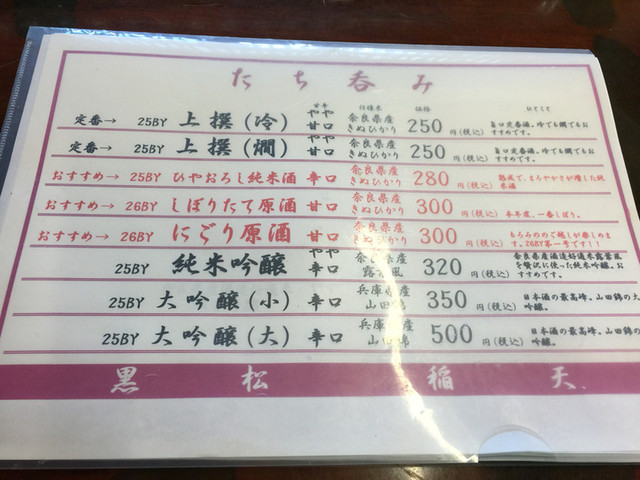 たち呑み
甘辛 使様米 価格 ひとこと
定番→ 25BY 上撰(冷) やや甘口 奈良県産きぬひかり 250円(税込) 旨口定番酒。冷でも燗でもおすすめです。
定番→ 25BY 上撰(燗) やや甘口 奈良県産きぬひかり 250円(税込) 旨口定番酒。冷でも燗でもおすすめです。
おすすめ→ 25BY ひやおろし純米酒 辛口 奈良県産きぬひかり 280円(税込) 熟成で、まろやかさが増した純米酒
おすすめ→ 26BY しぼりたて原酒 甘口 奈良県産きぬひかり 300円(税込) 本年度、一番しぼり。
おすすめ→ 26BY にごり原酒 甘口 奈良県産きぬひかり 300円(税込) もろみののど越しが楽しめます。26BY第一号です!!
25BY 純米吟醸 やや辛口 奈良県産露葉風 320円(税込) 奈良県産酒造好適米露葉風を贅沢に使った純米吟醸。おすすめです。
25BY 大吟醸(小) 辛口 兵庫県産山田錦 350円(税込) 日本酒の最高峰。山田錦の大吟醸。
25BY 大吟醸(大) 辛口 兵庫県産山田錦 500円(税込) 日本酒の最高峰。山田錦の大吟醸。
黒松稲天